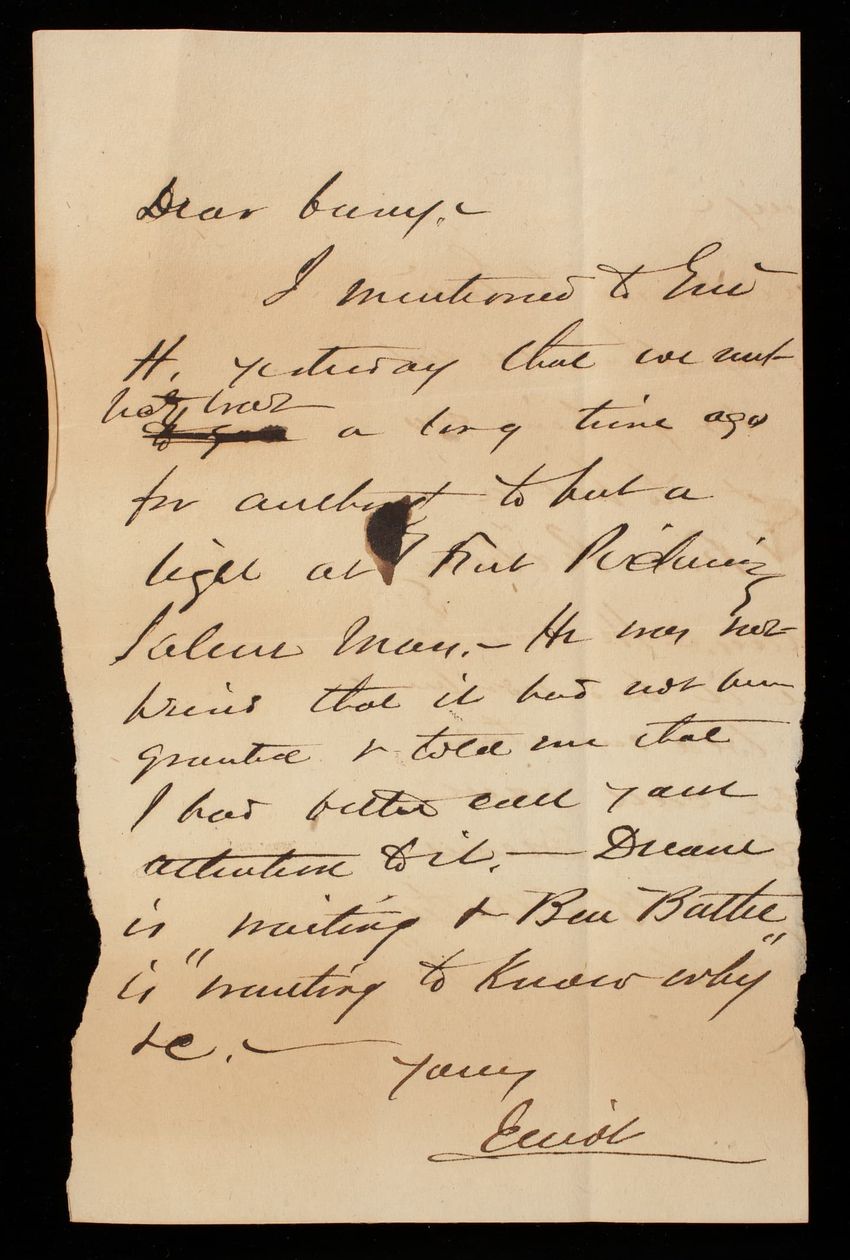 Dear Casey,-
I mentioned to Genl
H. yesterday that we sent
a long time ago
for authority to put a
light at Fort Pickering
Salem Mass.- He was not
that it had not been
granted & told me that
I had better call your
attention to it.- Duane
is waiting & Ben Butler
is "wanting to know why"
&c.-
Yours